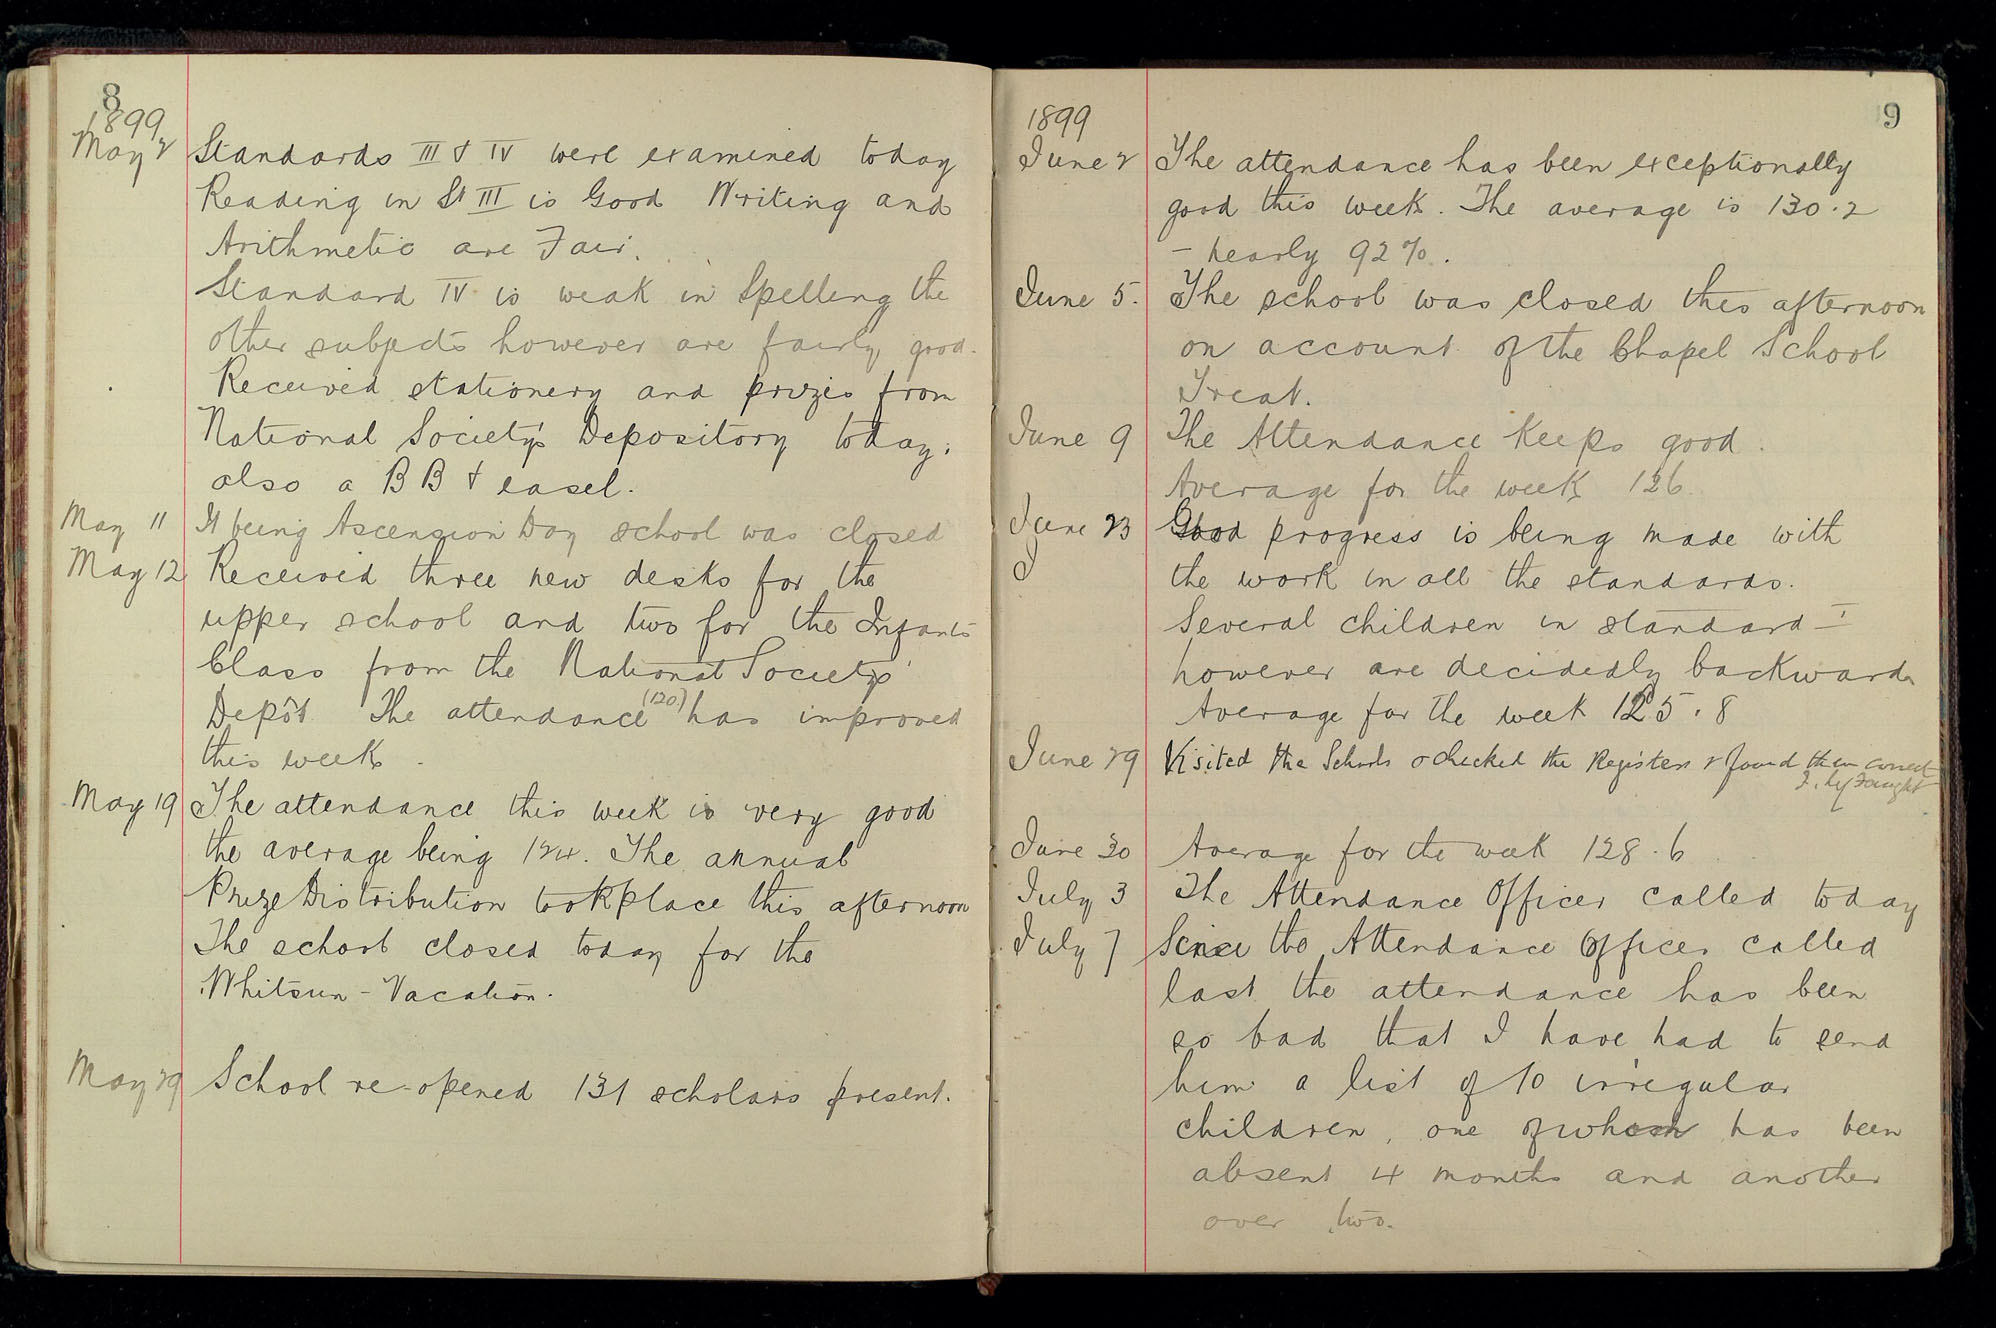 8
1899
May 2 Standards III & IV were examined today
Reading in St III is Good Writing and
Arithmetic are Fair.
Standard IV is weak in Spelling the
other subjects however are fairly good.
Received stationery and prizes from
National Society's Depository today;
also a BB & easel.
May 11 It being Ascension Day school was closed
May 12 Received three new desks for the
upper school and two for the Infants
Class from the National Society's
Depôt. The attendance (120) has improved
this week.
May 19 The attendance this week is very good
the average being 124. The annual
Prize Distribution took place this afternoon
The school closed today for the
Whitsun-Vacation.
May 29 School re-opened 131 scholars present.
9
1899
June 2 The attendance has been exceptionally
good this week. The average is 130.2
- nearly 92%.
June 5. The school was closed this afternoon
on account of the Chapel School
Treat.
June 9 The Attendance keeps good.
Average for the week 126.
June 23 Good progress is being made with
J the work in all the standards.
Several children in standard I
however are decidedly backward
Average for the week 125.8
June 29 Visited the Schools & checked the Registers & found them correct
June 30 Average for the week 128.6
July 3 The Attendance Officer called today
July 7 Since the Attendance Officer called
last the attendance has been
so bad that I have had to send
him a list of 10 irregular
children, one of whom has been
absent 4 months and another
over two.